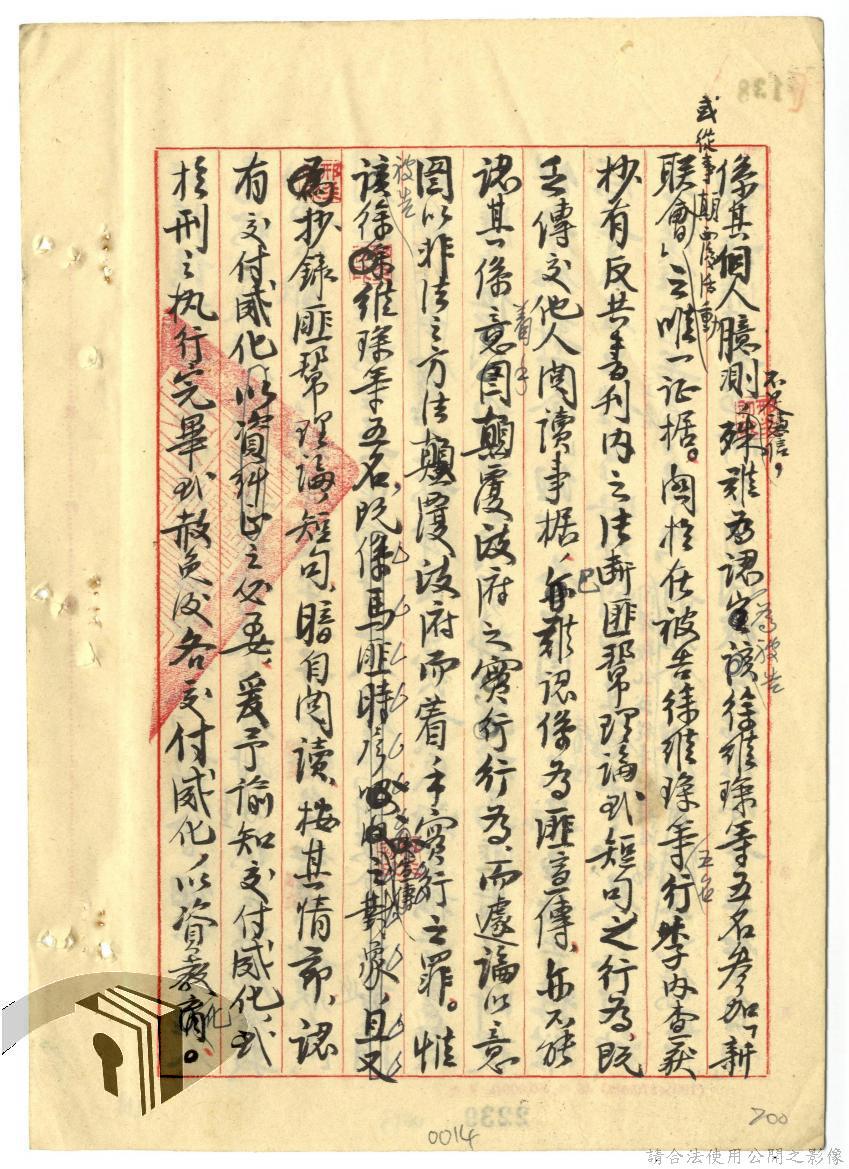 係其個人臆測，不足採信，殊難為認定該徐維琛等五名參加「新
聯會」或從事朝西屋活動之唯一証据。関於在被告徐維琛等五名行李內查获
抄有反共書刊內之法斷匪幫理論或短句之行為，既
乏傳交他人閱讀事据，亦難認係為匪宣傳，亦不能
認其係意圖顛覆政府之實行行為，而遽論以意
圖以非法之方法顛覆政府而着手實行之罪。惟
被告
該徐維琛等五名，既係馬匪時彥之對象，且又
抄錄匪幫理論短句，暗自閱讀，按其情節，認
有交付感化以資糾正之必要，爰予諭知交付感化，或
於刑之执行完畢或赦免後各交付感化，以資教化。
0014
700
2239
138
請合法使用公開之影像